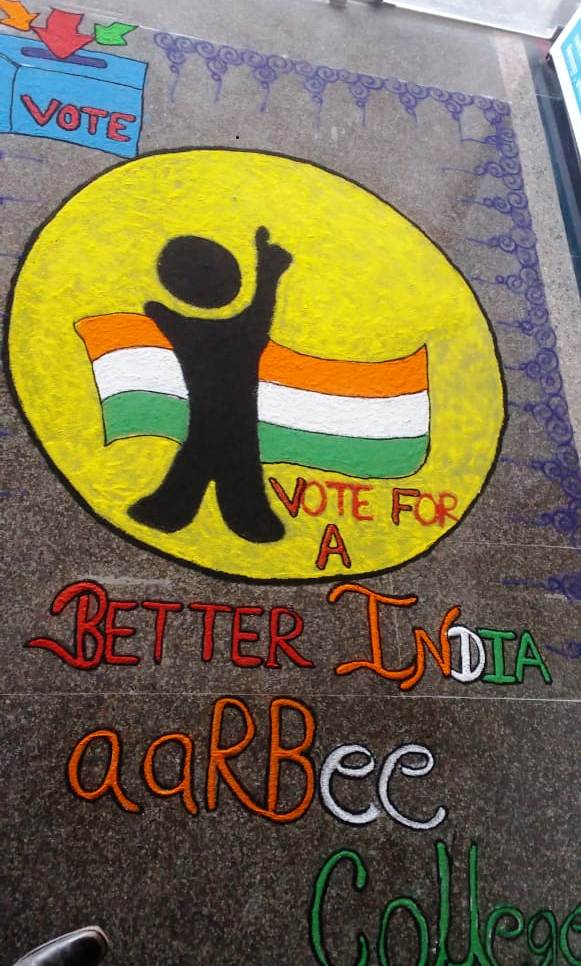 VOTE
VOTE FOR
A
BETTER INDIA
aaRBee
College